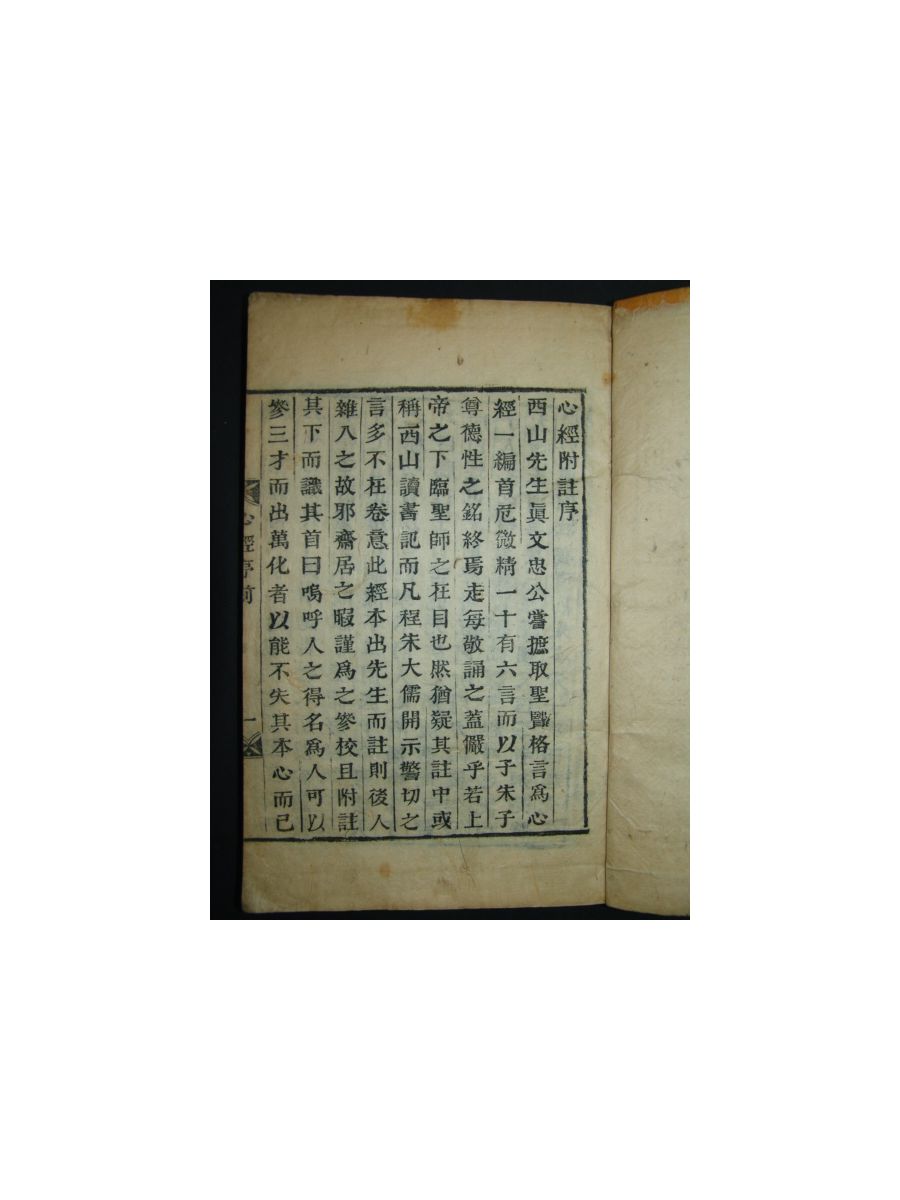 心經附註序
西山先生眞文忠公嘗摭取聖賢格言爲心
經一編首危微精一十有六言而以子朱子
尊德性之銘終焉走每敬誦之蓋儼乎若上
帝之下臨聖師之在目也然猶疑其註中或
稱西山讀書記而凡程朱大儒開示警切之
言多不在卷意此經本出先生而註則後人
雜入之故邪齋居之暇謹爲之參校且附註
其下而識其首曰嗚呼人之得名爲人可以
參三才而出萬化者以能不失其本心而已
心經序前 一